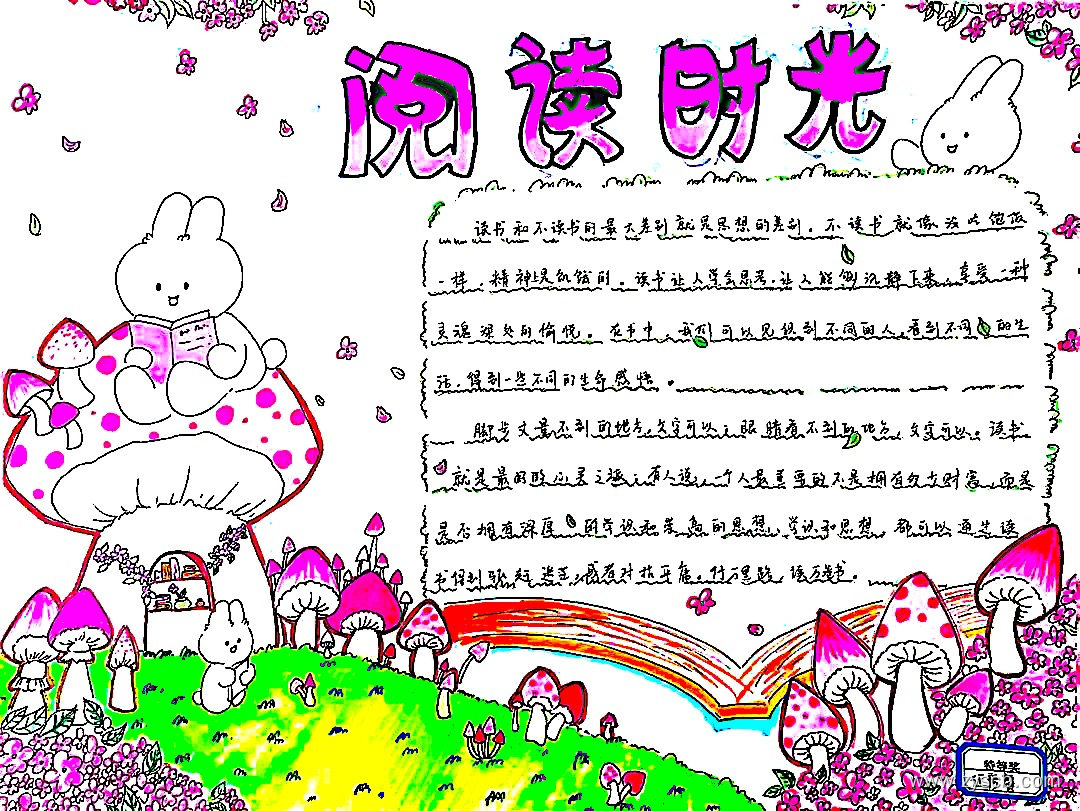 阅读时光
读书和不读书的最大差别就是思想的差别。不读书就像没吃饱饭
一样，精神是饥饿的。读书让人学会思考，让人能够沉静下来，享受一种
灵魂深处的愉悦。在书中，我们可以见识到不同的人，看到不同的生
活，得到一些不同的生命感悟。
脚步丈量不到的地方，文字可以；眼睛看不到的地方，文字可以。读书
就是最的　心灵之　有人说，一个人最重要的不是拥有多少财富，而是
是否拥有深度的学识和　的思想，学识和思想，都可以通过读
书得到　行万里路，读万卷书。
特等奖